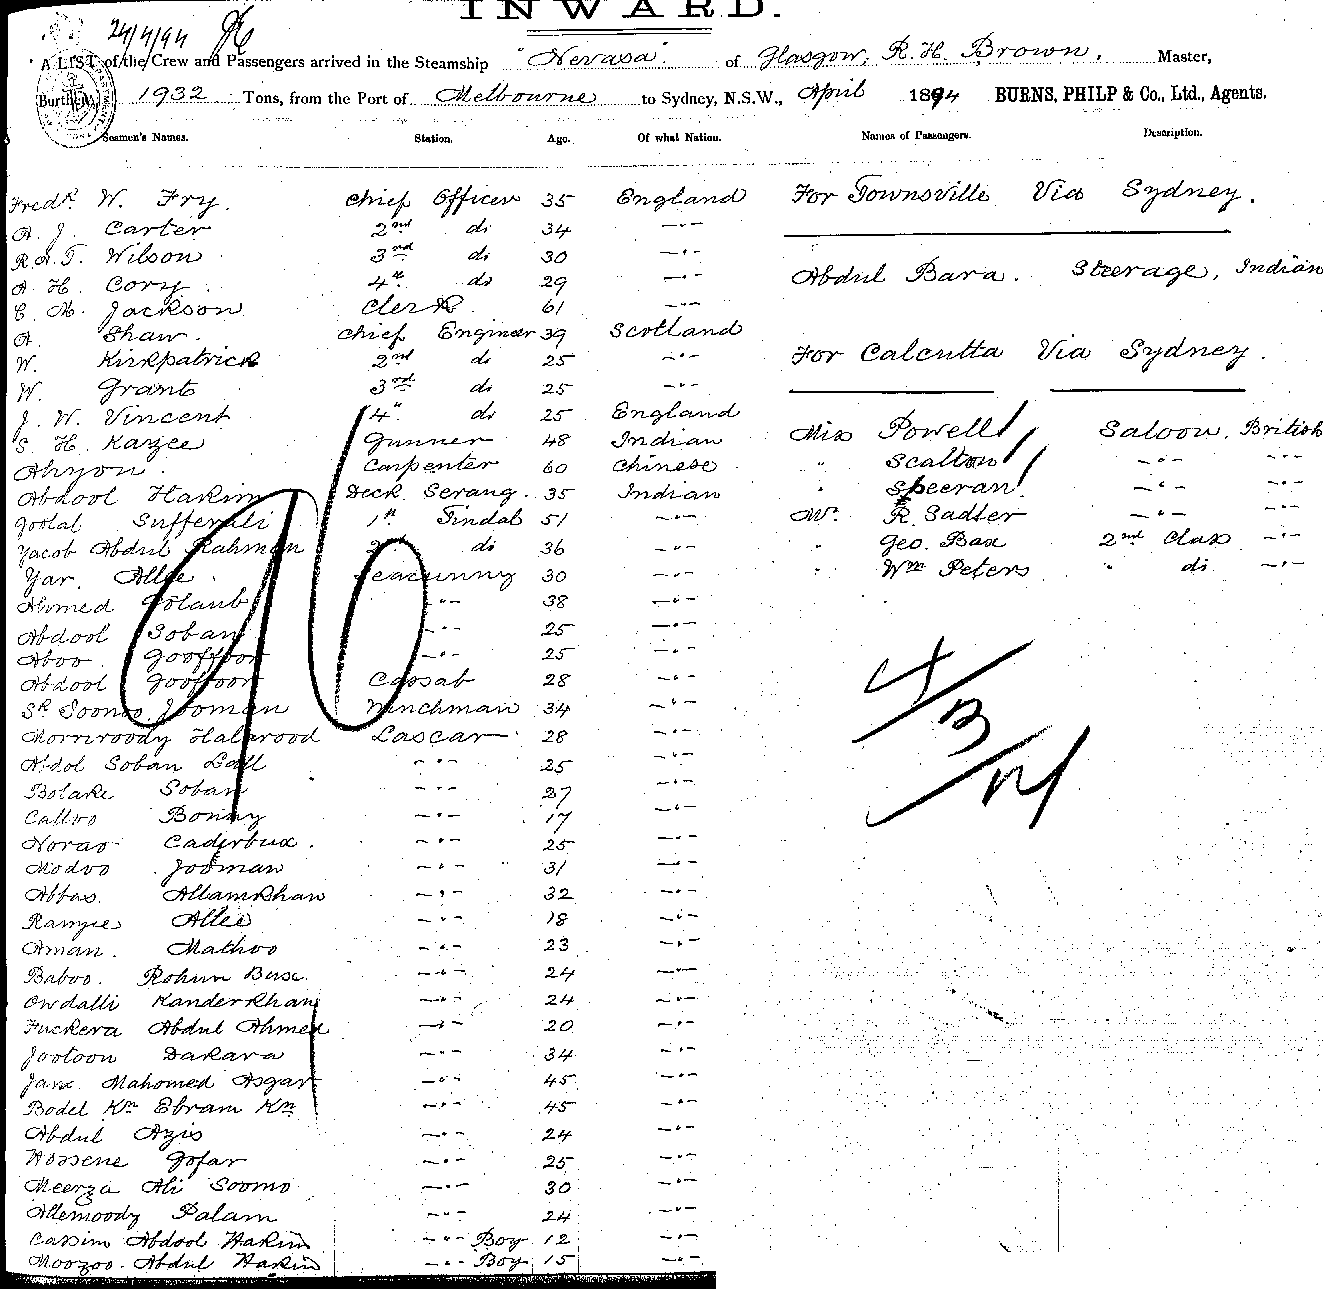 INWARD.
24/4/94
A LIST of the Crew and Passengers arrived in the Steamship "Nevasa" of Glasgow, R. H. Brown, Master,
Burthen 1932 Tons, from the Port of Melbourne to Sydney, N.S.W., April 1894 BURNS, PHILP & Co., Ltd., Agents.
Seamen's Names. Station. Age. Of what Nation. Names of Passengers. Description.
Fredk. W. Fry. Chief Officer 35 England
A. J. Carter 2nd do 34 -"-
R. A. T. Wilson 3rd do 30 -"-
A. H. Cory 4th do 29 -"-
C. M. Jackson Clerk 61 -"-
A. Shaw. Chief Engineer 39 Scotland
W. Kirkpatrick 2nd do 25 -"-
W. Grant 3rd do 25 -"-
J. W. Vincent 4th do 25 England
S. H. Kazee Gunner 48 Indian
Ahyon. Carpenter 60 Chinese
Abdool Hakim Deck Serang. 35 Indian
Goolal Sufferali 1st Tindal 51 -"-
Yacob Abdul Rahman 2nd do 36 -"-
Yar. Allee. Seacunny 30 -"-
Ahmed Golaub -"- 38 -"-
Abdool Soban -"- 25 -"-
Aboo. Gooffoor -"- 25 -"-
Abdool Gooffoor Cassab 28 -"-
Sk. Soonoo Jooman Winchman 34 -"-
Morriroody Halbrood Lascar 28 -"-
Abdol Soban Lall -"- 25 -"-
Bolake Soban -"- 27 -"-
Calloo Bonny -"- 17 -"-
Norao Caderbux. -"- 25 -"-
Modoo Jooman -"- 31 -"-
Abbas. Allamkhan -"- 32 -"-
Ramjee Allee -"- 18 -"-
Aman. Mathoo -"- 23 -"-
Baboo. Rohim Bux. -"- 24 -"-
Owdalli Kanderkhan -"- 24 -"-
Fuckera Abdul Ahmed -"- 20 -"-
Jootoon Dakara -"- 34 -"-
Jane Mahomed Asgar -"- 45 -"-
Bodel Kn Ebram Kn -"- 45 -"-
Abdul Azis -"- 24 -"-
Hossene Gofar -"- 25 -"-
Meerza Ali Soomo -"- 30 -"-
Allemoody Palam -"- 24 -"-
Cassim Abdool Hakim -"- Boy 12 -"-
Moozoo. Abdul Hakim -"- Boy 15 -"-
For Townsville Via Sydney.
Abdul Bara. Steerage, Indian
For Calcutta Via Sydney.
Miss Powell Saloon, British
" Scalton -"- -"-
" Speeran -"- -"-
Mr. R. Sadler -"- -"-
" Geo. Bax 2nd Class -"-
" Wm Peters " do -"-